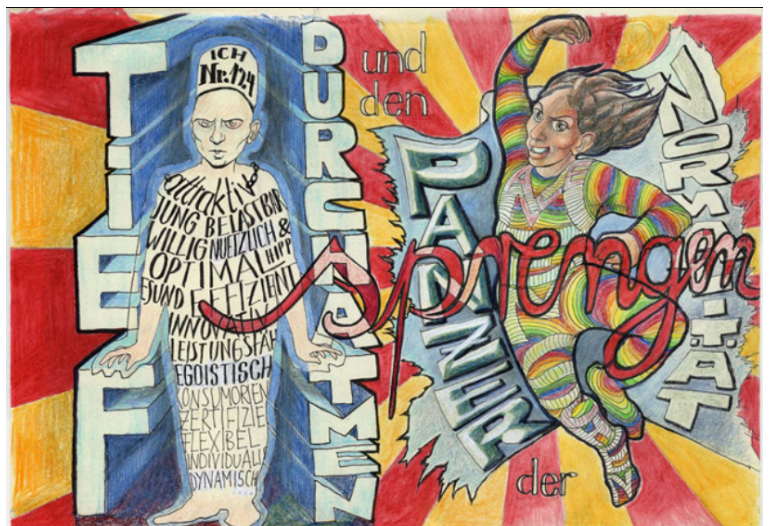 TiEF
DURCHATMEN
ICH
Nr. 124
attraktiv
JUNG BELASTBAR
WILLIG NUETZLICH &
OPTIMAL HIPP
GESUND EFFIZIENT
INNOVATIV
LEISTUNGSFÄH
EGOISTISCH
KONSUMORIEN
ZERTIFIZIE
FLEXIBEL
INDIVIDUALI
DYNAMISCH
und
den
PANZER
der
NORMALITÄT
sprengen